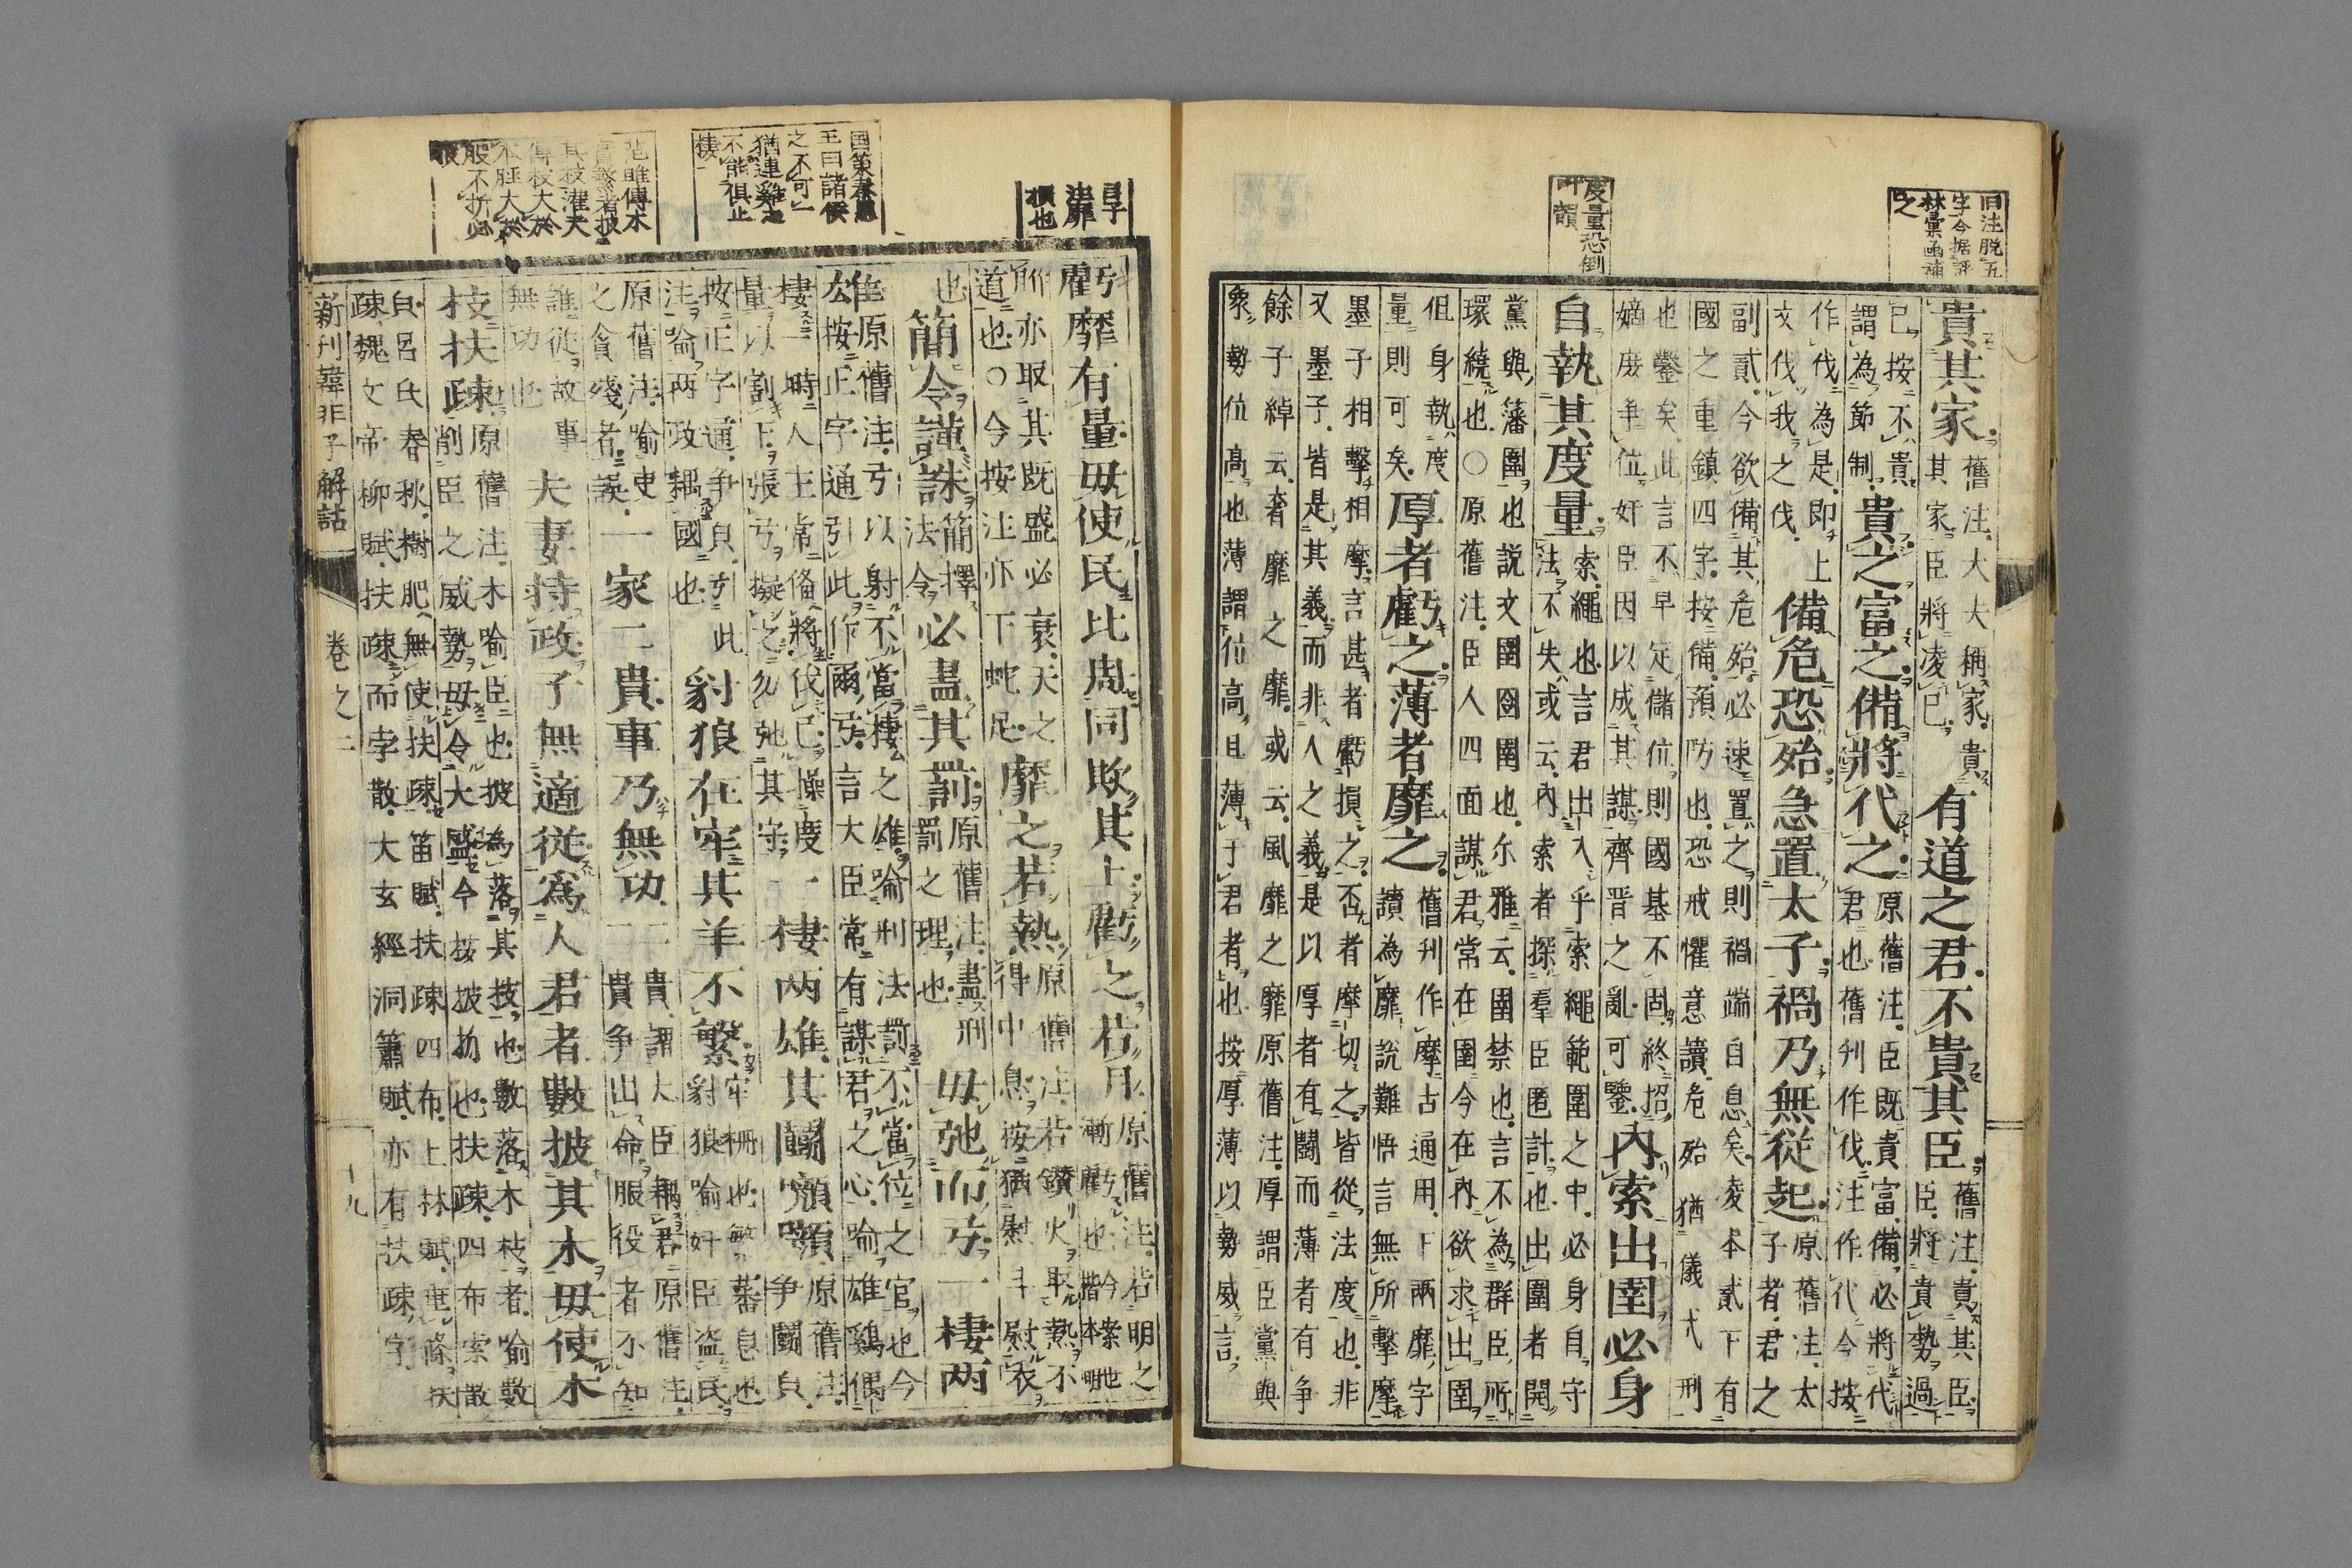 旧注脱五
字今据評
林彙函補
之
貴其家。
舊注。大夫稱家。貴
其家。臣將凌已。
有道之君。不貴其臣。
舊注。貴其臣。
臣將貴勢過
已。按不貴。
謂為節制。
貴之富之。備將代之。
原舊注。臣既貴富。備必將代
君也。舊刋作伐。注作代。今按
作伐為是。即上
文伐我之伐。
備危恐殆。急置太子。禍乃無従起。
原舊注。太
子者。君之
副貳。今欲備其危殆。必速置之。則禍端自息矣。凌本貳下有
國之重鎮四字。按備。預防也。恐戒懼意讀。危殆猶儀弍刑
也鑿矣。此言不早定儲位。則國基不固。終招
嫡庻争位。奸臣因以成其謀。齊晋之亂。可鑒。
內索出圉。必身
度量恐倒
韻
自執其度量。
索。繩也。言君出入乎索繩範圍之中。必身自守
法不失。或云。内索者探羣臣匿計也。出圍者開
黨與。藩圍也説文圉囹圉也。尓雅云。圉禁也。言不為群臣所
環繞也。〇原舊注。臣人四面謀君。常在圉。今在内。欲求出圉
但身執度
量則可矣。
厚者虧之。薄者靡之。
舊刋作摩。古通用。下兩靡字
讀為靡。説難悟言無所擊摩
墨子相擊相摩。言甚者虧損之。否者摩切之。皆從法度也。非
又墨子。皆是其義。而非人之義。是以厚者有鬪而薄者有争
餘子綽云。奢靡之靡。或云。風靡之靡。原舊注。厚謂臣黨與
衆。勢位高也。薄謂位高。且薄于君者也。按厚薄以勢威言。
靡
損也
虧靡有量。毋使民比周同欺其上。虧之若月。
原舊注。若明之
漸虧也今案世楷本明
所亦取其既盛必衰。天之
道也。〇今按注亦下蛇足。
靡之若熱。
原舊注。若鑽火取熱。不
得中息。按猶慰斗慰衣
也。
簡令謹誅。
簡擇
法令。
必盡其罰。
原舊注。盡刑
罰之理也。
毋弛而弓。一棲两
国策秦惠
王曰諸侯
之不可一
猶連雞之
不能俱止
棲
雄。
原舊注。弓以射不當。棲之雄。喻刑法罰不當位之官也今
按正字通引此作爾弓。言大臣常有謀君之心。喻雄鷄偶
棲一時。人主常備將伐已。操度
量以割下。張弓擬之。勿弛其守。
一棲两雄。其鬪㘖㘖。
原舊注。
争鬪皃。
按正字通。争皃。引此
注。喻兩政耦國也。
豺狼在牢。其羊不繁。
牢柵也。繁蕃息也
豺狼喻奸臣盗民。
原舊注。喻吏
之貪殘者。誤。
一家二貴。事乃無功。
二貴。謂大臣耦君。原舊注。
二貴争出命。服役者不知
誰從。故事
無功也。
夫妻持政。子無適従。為人君者。數披其木。毋使木
范雎傳木
實繁者披
其枝
傳枝大於
本脛大於
股不折必
披
枝扶疎。
原舊注。木喻臣也。披為落其枝也。數落木枝者。喻數
削臣之威勢。毋令大盛。今按披扬也。扶疎。四布索散
皃。呂氏春秋。樹肥無使扶疎。笛賦。扶疎四布。上林賦。埀條扶
疎。魏文帝柳賦。扶疎而孛散。大玄經洞簫賦。亦有扶疎字。
新刊韓非子解詁
卷之二
十九